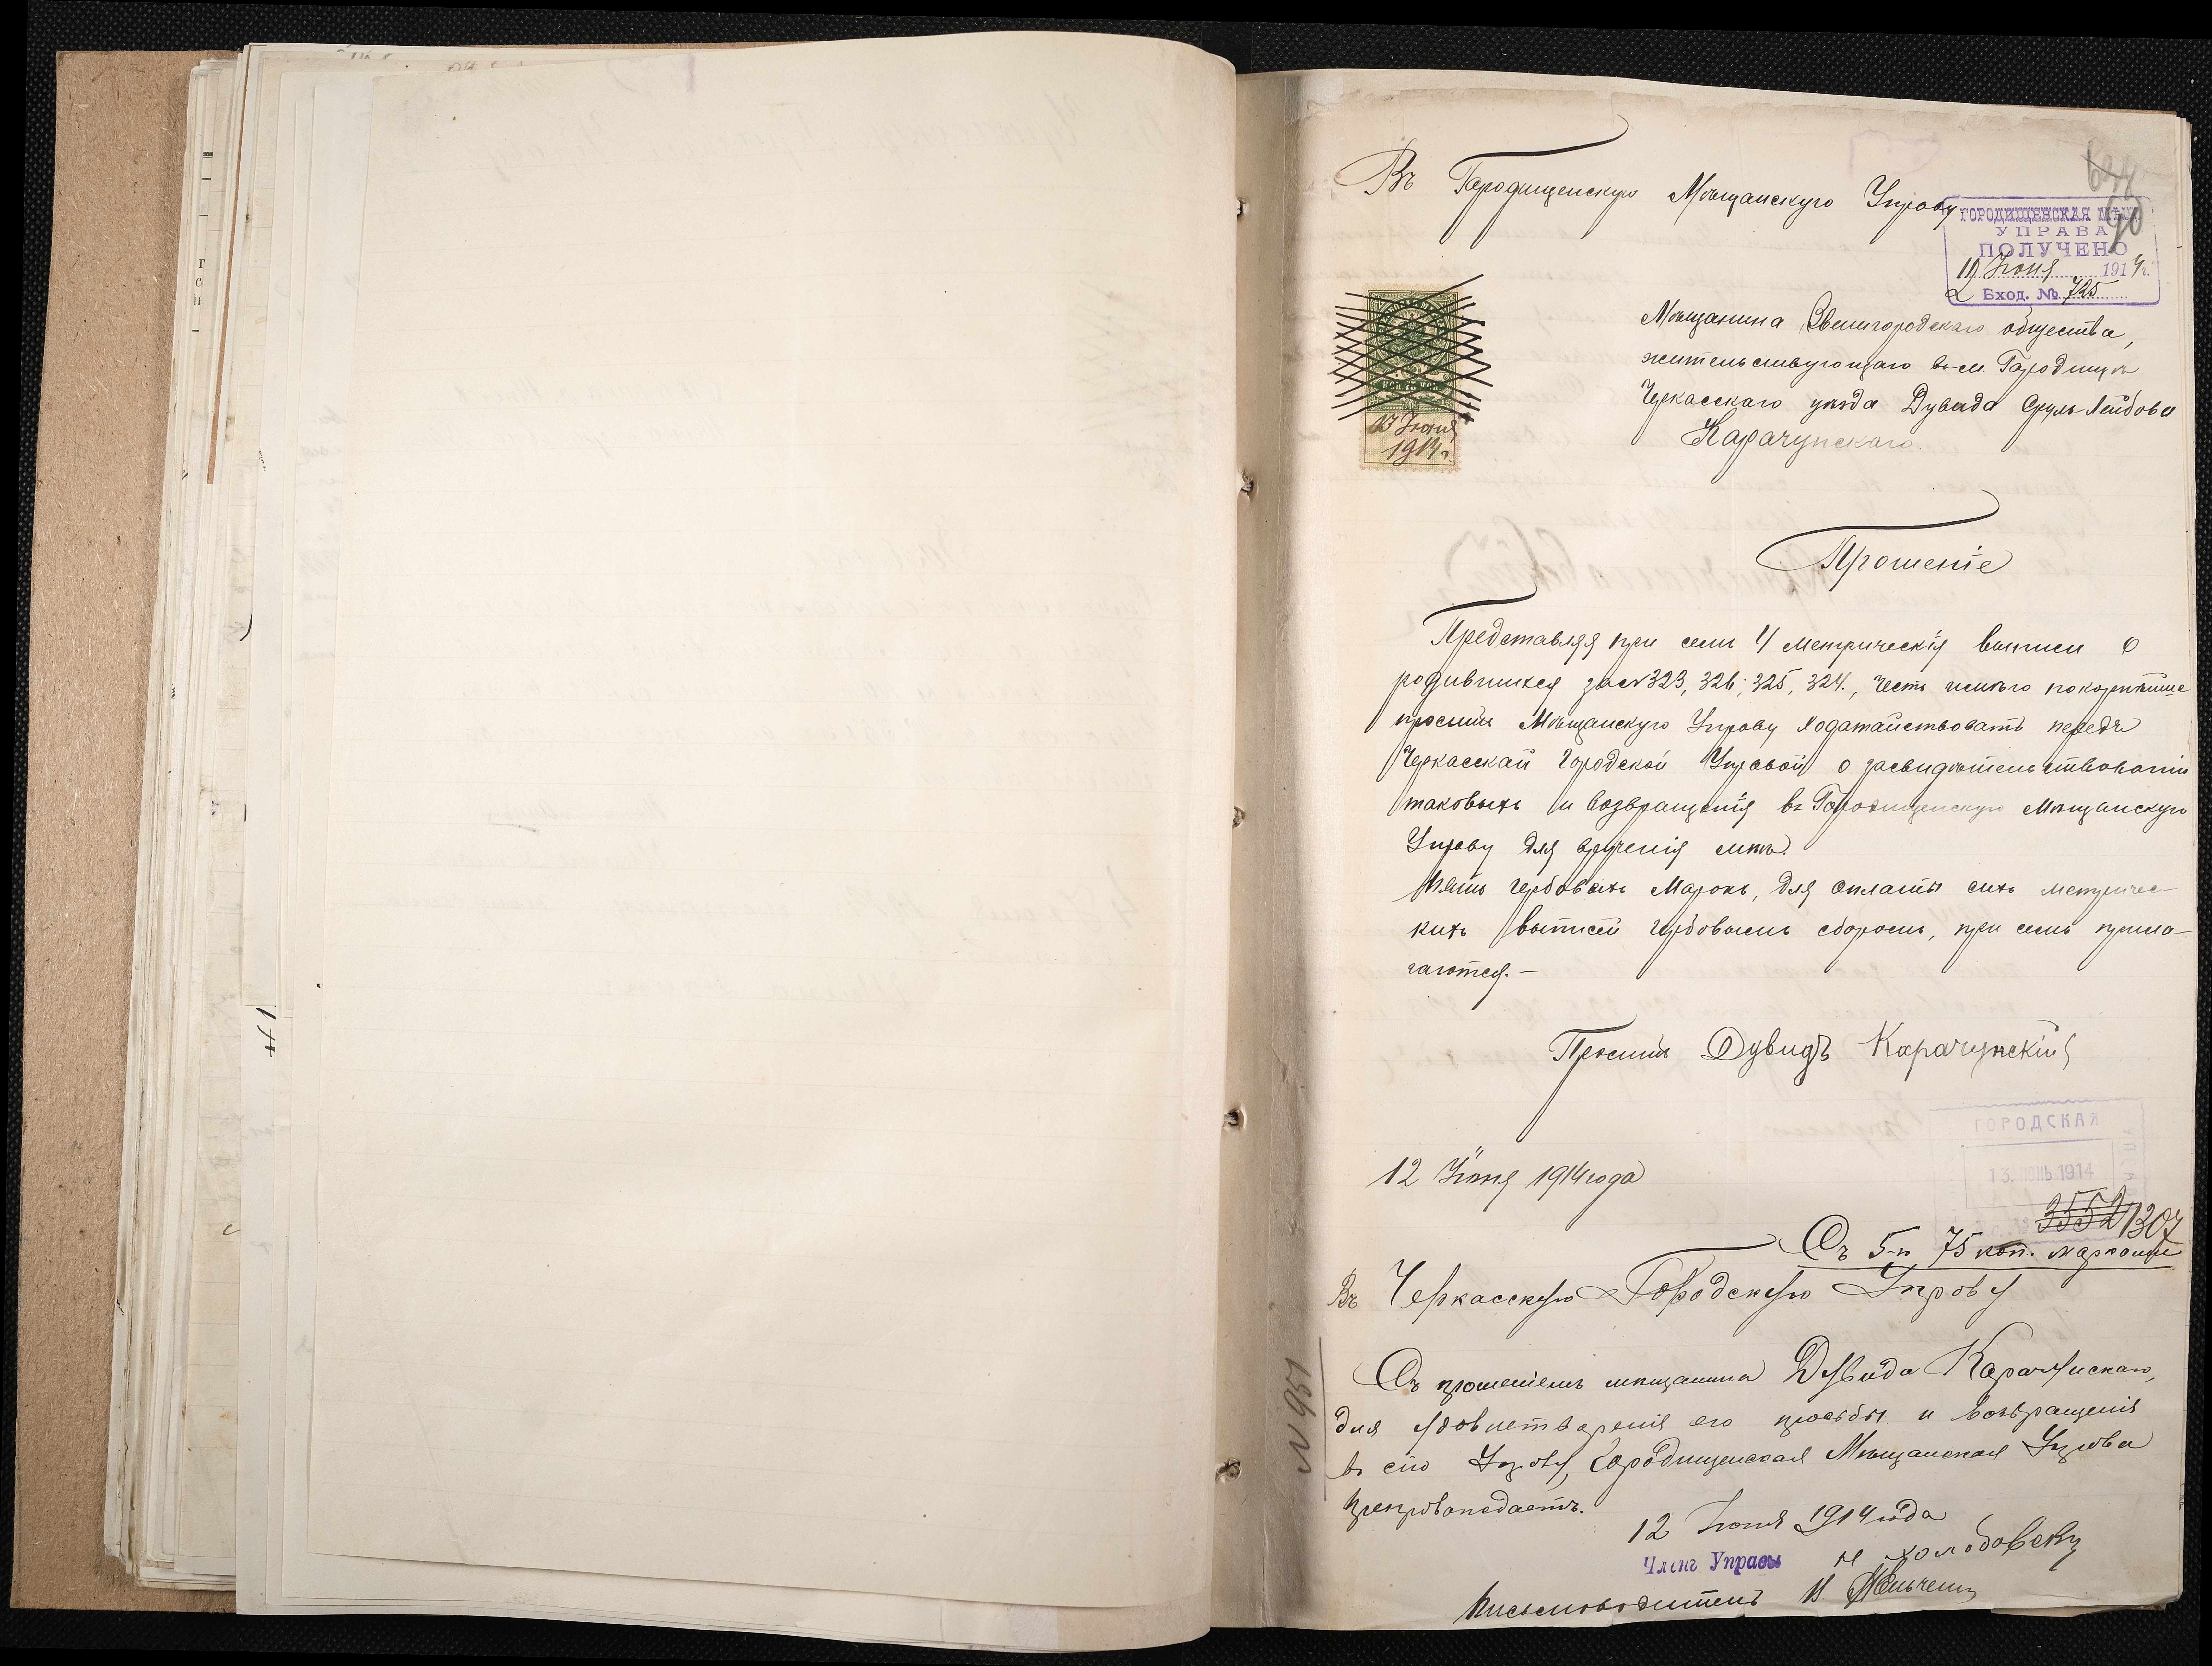 Въ Городищенскую Мѣщанскую Управу
90
ГОРОДИЩЕНСКАЯ МѢЩ.
УПРАВА
ПОЛУЧЕНО
12 Іюня 1914 г.
Вход. № 725
Мѣщанина Звенигородскаго общества,
жительствующаго въ м. Городищѣ
Черкасскаго уѣзда Дувида Сруль-Лейбова
Карачунскаго.
КОП. 75 КОП.
13 Іюня
1914 г.
Прошеніе
Представляя при семъ 4 метрическія выписи о
родившихся за № 323, 326, 325, 324, честь имѣю покорнѣйше
просить Мѣщанскую Управу ходатайствовать передъ
Черкасской Городской Управой о засвидѣтельствованіи
таковыхъ и возвращенія въ Городищенскую Мѣщанскую
Управу для врученія мнѣ.
Пять гербовыхъ марокъ, для оплаты сихъ метричес-
кихъ выписей гербовымъ сборомъ, при семъ прила-
гаются.—
Проситъ Дувидъ Карачунскій
12 Іюня 1914 года
ГОРОДСКАЯ
13. ІЮНЬ 1914
3552 1307
Съ 5-ю 75 коп. марками
Въ Черкасскую Городскую Управу
№ 951
Съ прошеніемъ мѣщанина Дувида Карачунскаго,
для удовлетворенія его просьбы и возвращенія
въ сію Управу, Городищенская Мѣщанская Управа
препровождаетъ.
12 Іюня 1914 года
Членъ Управы
Письмоводитель